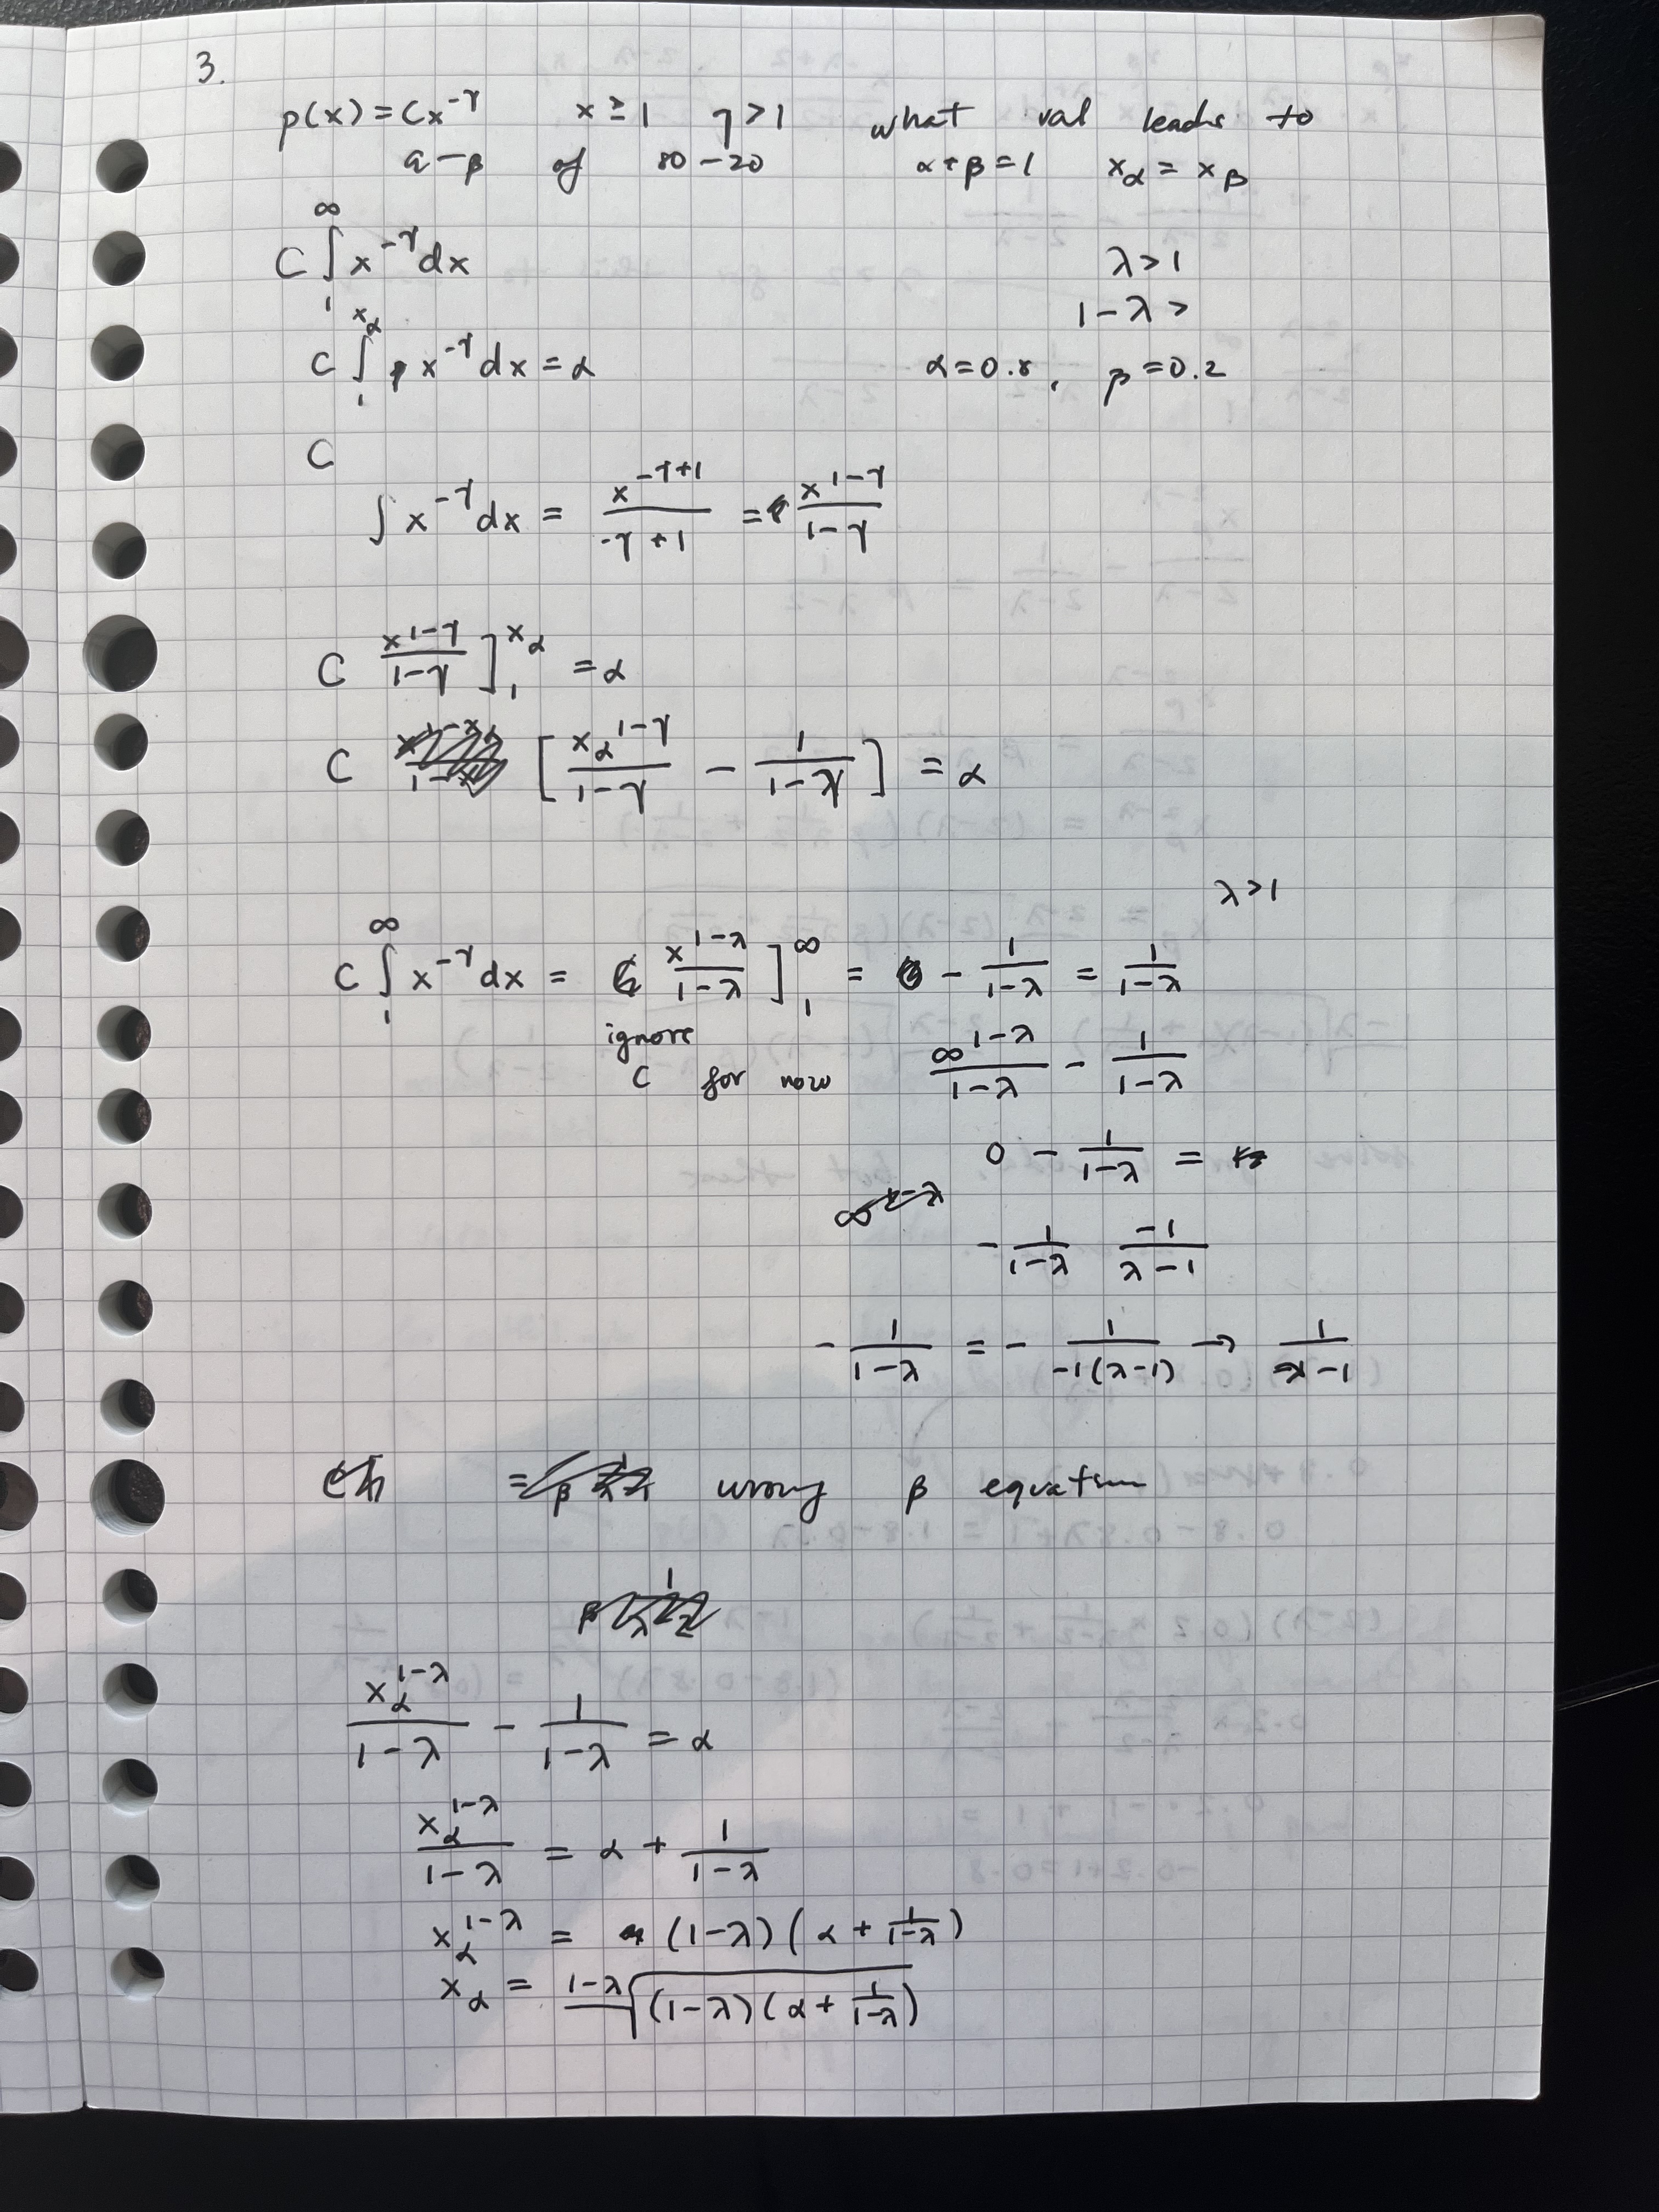 3.
p(x) = Cx^{-γ} x ≥ 1 γ > 1 what val leads to
α - β of 80 - 20 α + β = 1 x_α = x_β
C ∫_1^∞ x^{-γ} dx λ > 1
1 - λ >
C ∫_1^{x_α} x^{-γ} dx = α α = 0.8, β = 0.2
C
∫ x^{-γ} dx = \frac{x^{-γ+1}}{-γ+1} = \frac{x^{1-γ}}{1-γ}
C \frac{x^{1-γ}}{1-γ} ]_1^{x_α} = α
C [ \frac{x_α^{1-γ}}{1-γ} - \frac{1}{1-γ} ] = α
λ > 1
C ∫_1^∞ x^{-γ} dx = \frac{x^{1-λ}}{1-λ} ]_1^∞ = - \frac{1}{1-λ} = \frac{1}{1-λ}
ignore
C for now \frac{∞^{1-λ}}{1-λ} - \frac{1}{1-λ}
0 - \frac{1}{1-λ} =
- \frac{1}{1-λ} \frac{-1}{λ-1}
- \frac{1}{1-λ} = - \frac{1}{-1(λ-1)} → \frac{1}{λ-1}
= wrong β equation
\frac{x_α^{1-λ}}{1-λ} - \frac{1}{1-λ} = α
\frac{x_α^{1-λ}}{1-λ} = α + \frac{1}{1-λ}
x_α^{1-λ} = (1-λ)(α + \frac{1}{1-λ})
x_α = \sqrt[1-λ]{(1-λ)(α + \frac{1}{1-λ})}